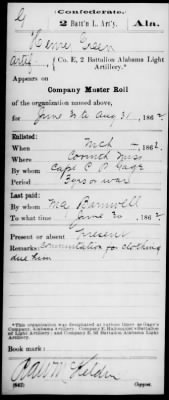 G
Confederate.
2 Batt'n L. Art'y.
Ala.
Green
Co. E, 2 Battalion Alabama Light
Artillery.*
Appears on
Company Muster Roll
of the organization named above,
for June 30 to Aug 31, 1862.
Enlisted:
When Mch, 1862.
Where Corinth Miss
By whom Capt C. P. Gage
Period 3 yrs or war
Last paid:
By whom Maj Barnwell
To what time June 30, 1862.
Present or absent Present
Remarks: commutation for clothing
due him
*This organization was designated at various times as Gage's
Company, Alabama Artillery;
of Light Artillery; and Company E, 2d Battalion Alabama Light
Artillery.
Book mark:
(642)
Copyist.